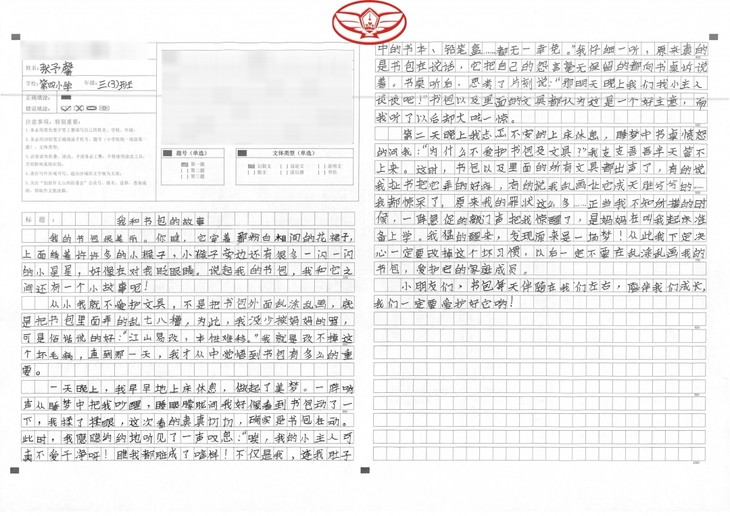 姓名：
学校：第四小学 年级：三（3）班
正确填涂：
错误填涂：
注意事项，特别重要：
题号（单选）
第一题
第二题
第三题
文体类型（单选）
记叙文
议论文
说明文
散文
书信
标题：我和书包的故事
我的书包很美丽。你瞧，它穿着粉白相间的花裙子，
上面绣着许许多多的小猴子，小猴子旁边还有很多一闪一闪
的小星星，好像在对我眨眼睛。说起我的书包，我和它之
间还有一个小故事呢！
从小我就不爱护文具，不是把书包外面乱涂乱画，就
是把书包里面弄的乱七八糟，为此，我没少挨妈妈的骂，
可是俗话说的好：“江山易改，本性难移。”我就是改不掉这
个坏毛病，直到那一天，我才从中觉悟到书包有多么的重
要。
一天晚上，我早早地上床休息，做起了美梦。一阵响
声从睡梦中把我吵醒，睡眼朦胧间我好像看到书包动了一
下，我揉了揉眼，这次看的真真切切，确实是书包在动。
此时，我隐隐约约地听见了一声叹息：“唉，我的小主人可
真不爱干净呀！瞧我都脏成了啥样！不仅是我，连我肚子
中的书本、铅笔盒……都无一幸免。”我仔细一听，原来真的
是书包在说话，它把自己的怨言毫无保留的都向书桌诉说
着。书桌听后，思考了片刻说：“那明天晚上我们找小主人
谈谈吧！”书包以及里面的文具都认为这是一个好主意，而
我听了以后却大吃一惊。
第二天晚上我忐忑不安的上床休息，睡梦中书桌愤怒
的问我：“为什么不爱护书包及文具？”我支支吾吾半天答不
上来。这时，书包以及里面的所有文具都出声了，有的说
我让书把它弄的好痛，有的说我乱画让它成天脏兮兮的……
我都惊呆了，原来我的罪状这么多……正当我不知所措的时
候，一阵急促的敲门声把我惊醒了，是妈妈在叫我起来准
备上学。我猛的醒来，发现原来是一场梦！从此我下定决
心一定要改掉这个坏习惯，以后一定不要在乱涂乱画我的
书包，爱护它的家庭成员。
小朋友们，书包每天伴随在我们左右，陪伴我们成长，
我们一定要爱护好它哟！